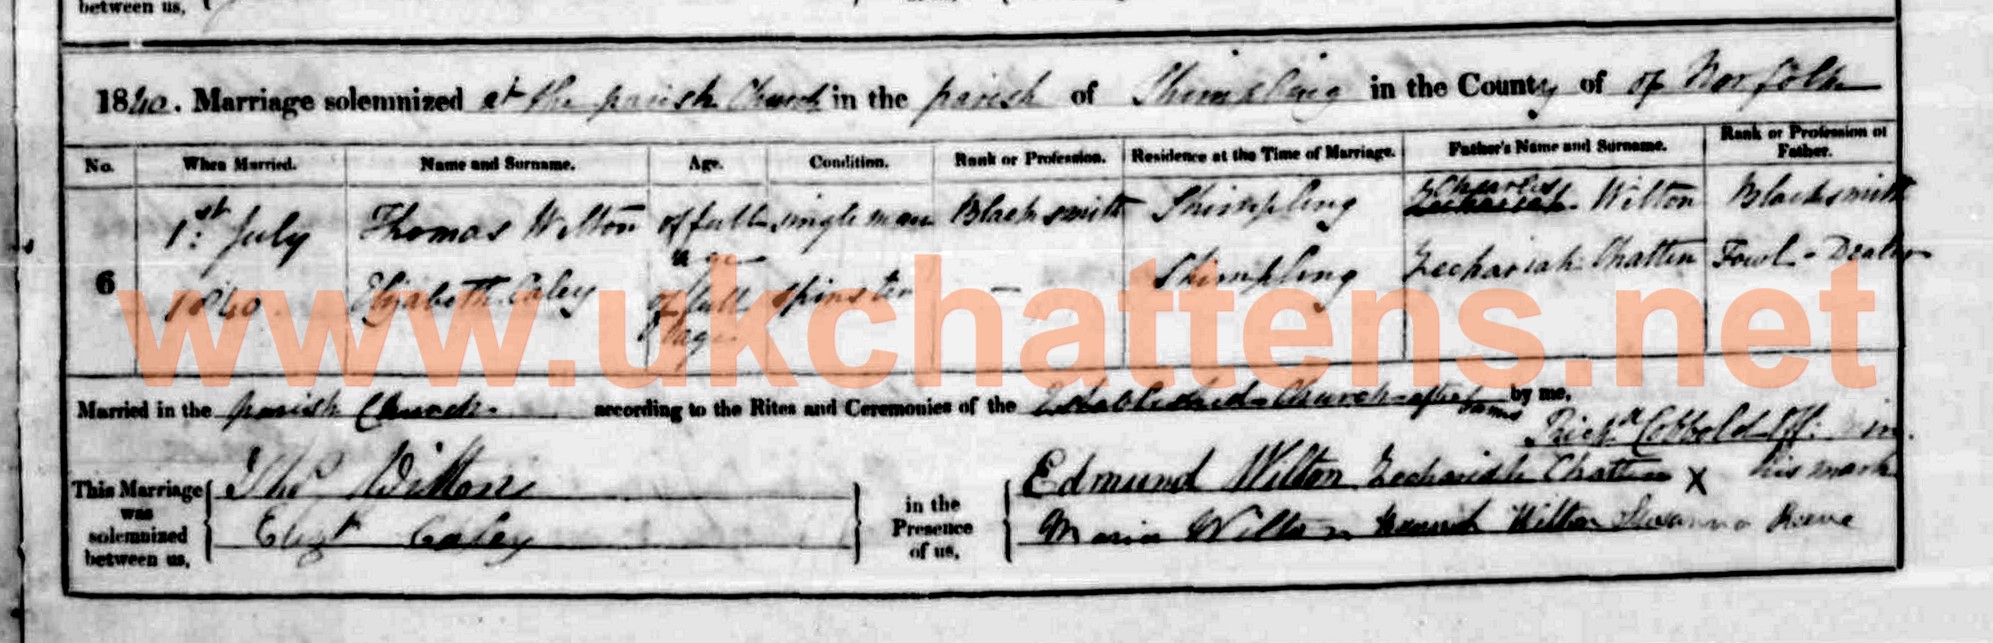 between us,
1840. Marriage solemnized at the parish Church in the parish of Shimpling in the County of of Norfolk
No. When Married. Name and Surname. Age. Condition. Rank or Profession. Residence at the Time of Marriage. Father's Name and Surname. Rank or Profession of Father.
6 1st July 1840 Thomas Wilton of full age single man Blacksmith Shimpling Zechariah Charles Wilton Blacksmith
Elizabeth Caley of full age spinster – Shimpling Zechariah Chatten Fowl-Dealer
www.ukchattens.net
Married in the parish Church according to the Rites and Ceremonies of the Established Church after banns by me,
Richd Cobbold Off. Min.
This Marriage was solemnized between us, Thos Wilton
Elizth Caley
in the Presence of us, Edmund Wilton Zechariah Chatten X his mark
Maria Wilton Hannah Wilton Susanna Reeve